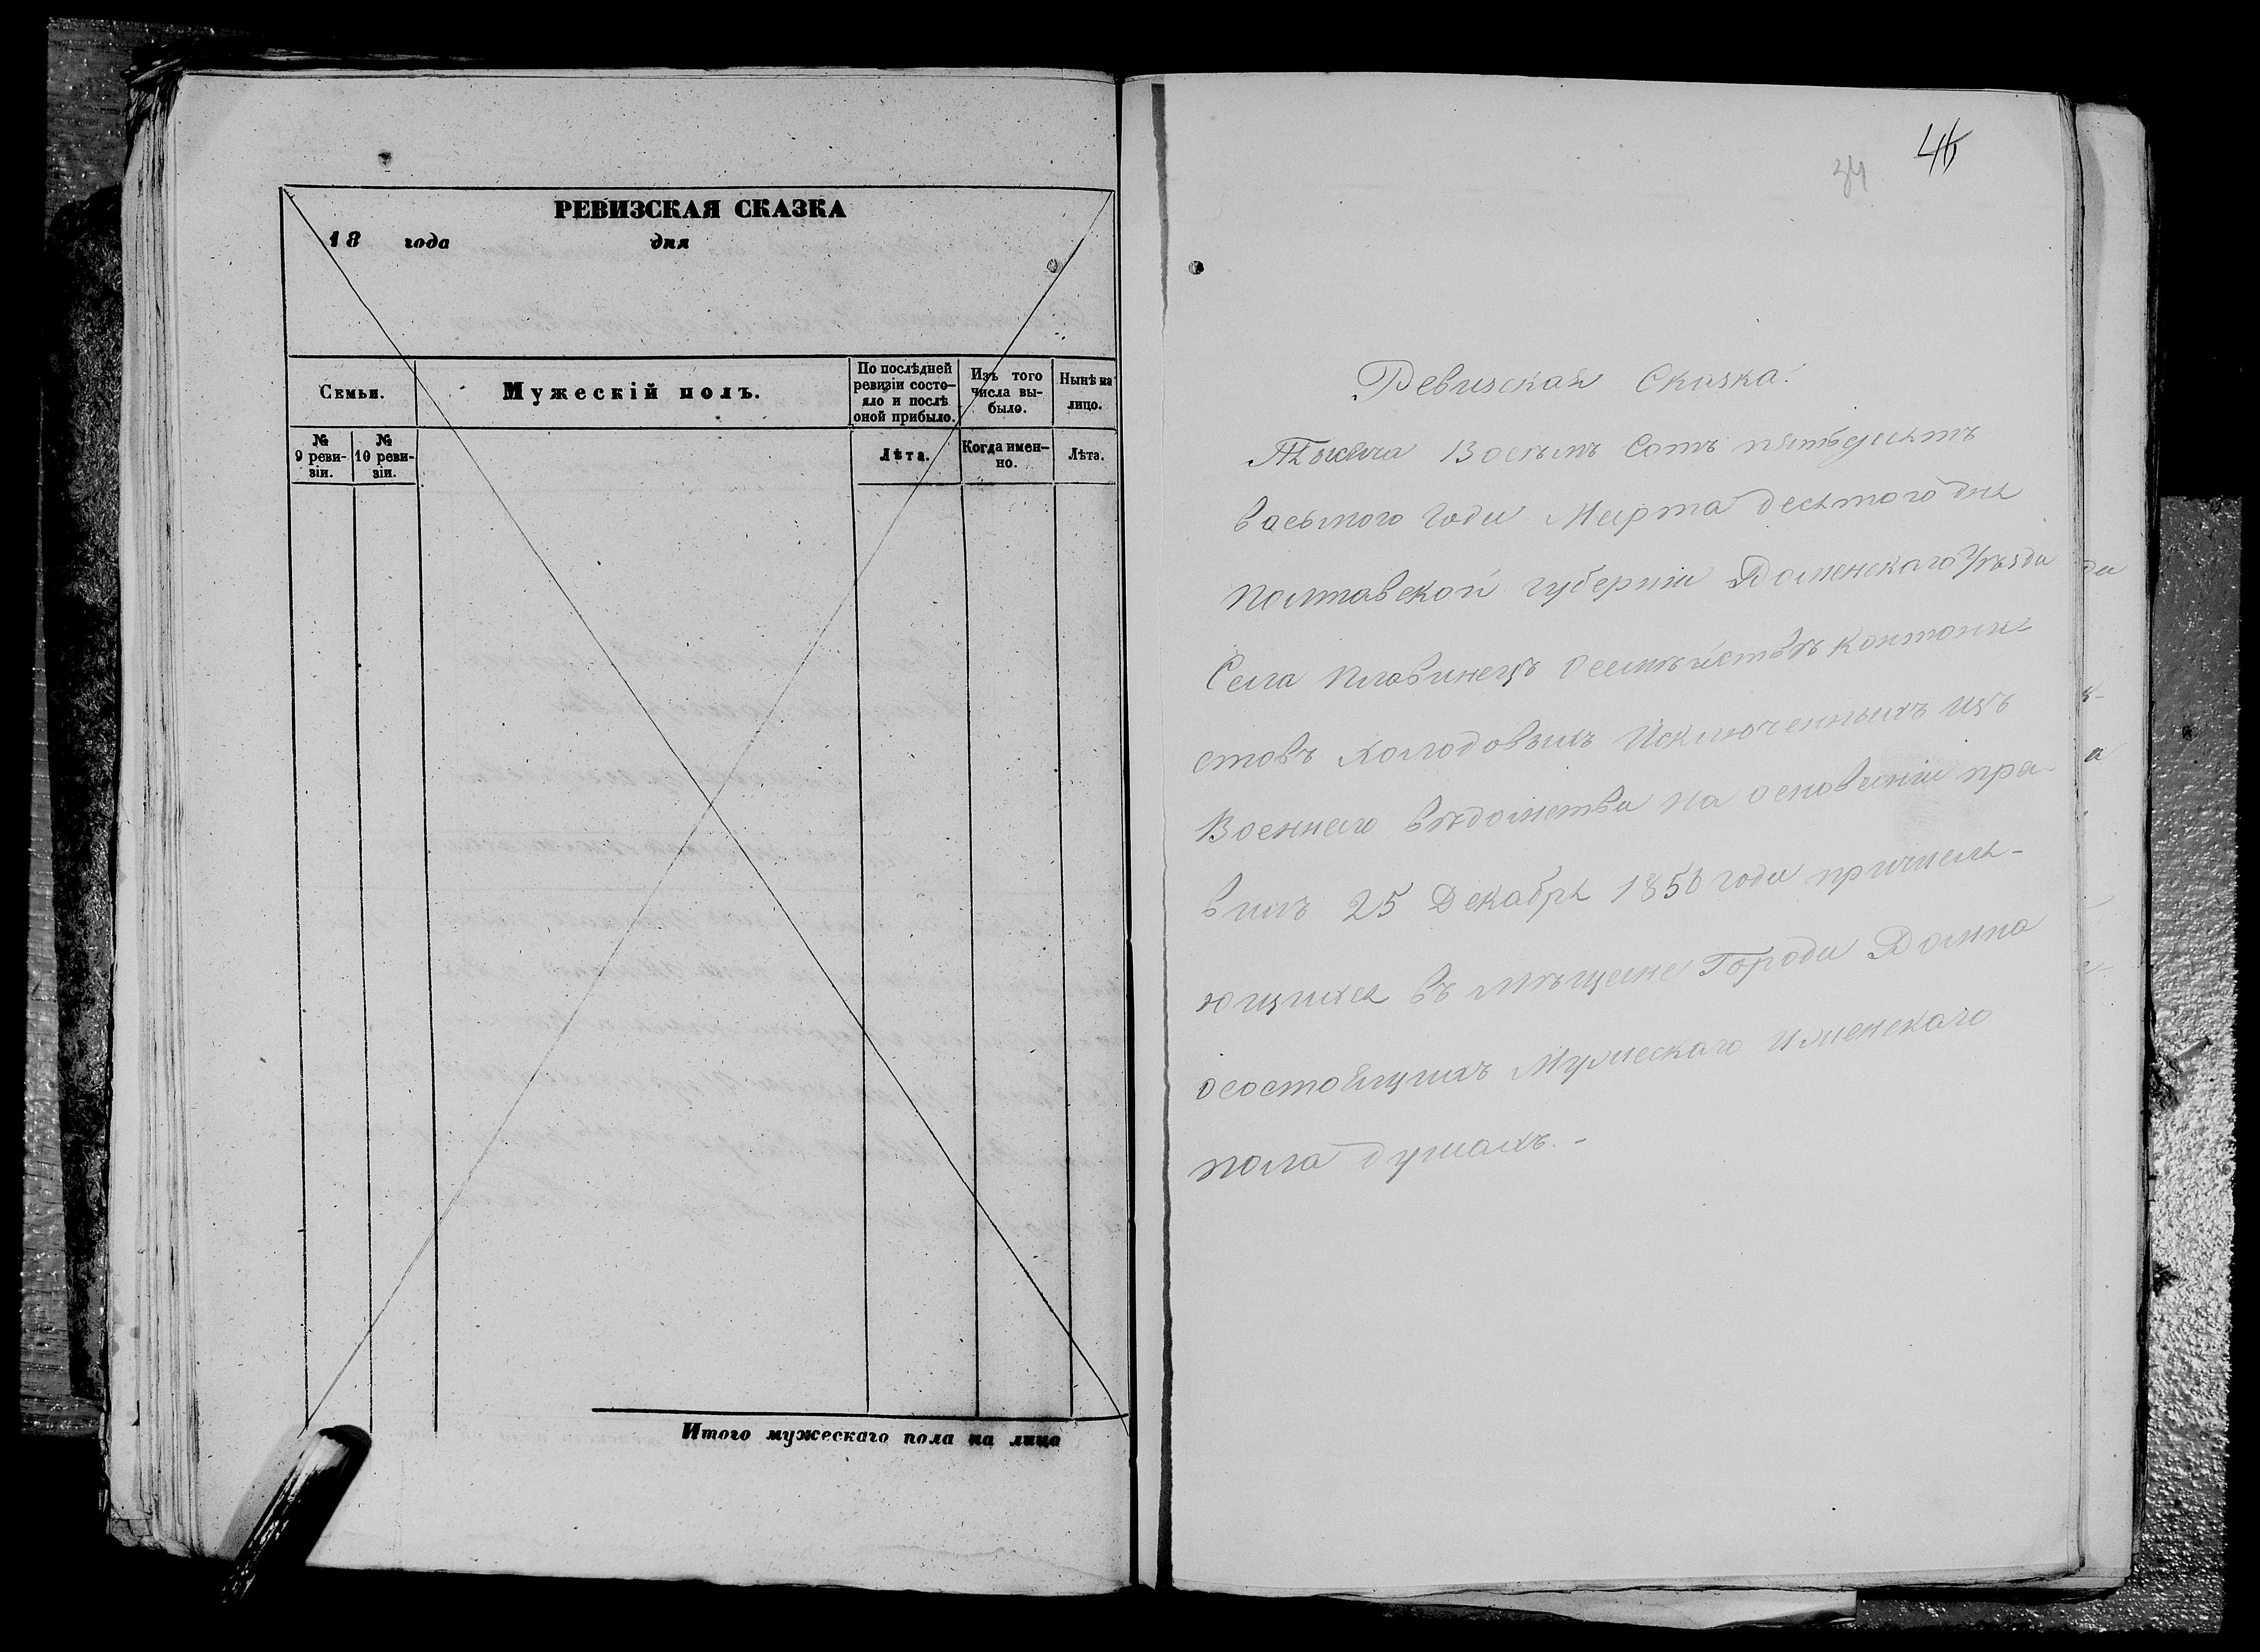 РЕВИЗСКАЯ СКАЗКА
18 года дня
Семьи.
Мужескій полъ.
По послѣдней
ревизіи состо-
яло и послѣ
оной прибыло.
Изъ того
числа вы-
было.
Нынѣ на
лицо.
№
9 реви-
зіи.
№
10 реви-
зіи.
Лѣта.
Когда имен-
но.
Лѣта.
Итого мужескаго пола на лицо
34
Ревизская Сказка.
Тысяча Восемъ Сотъ пятьдесятъ
восьмого года Марта десятого дня
Полтавской губерніи Роменскаго Уѣзда
Села Плавинецъ осемѣйствѣ Кантони-
стовъ Холодовыхъ Исключенныхъ изъ
Военнаго вѣдомства на основаніи пра-
вилъ 25 Декабря 1856 года причисля-
ющихся въ мѣщане Города Ромна
осостоящихъ Мужескаго Иженскаго
пола душахъ. -